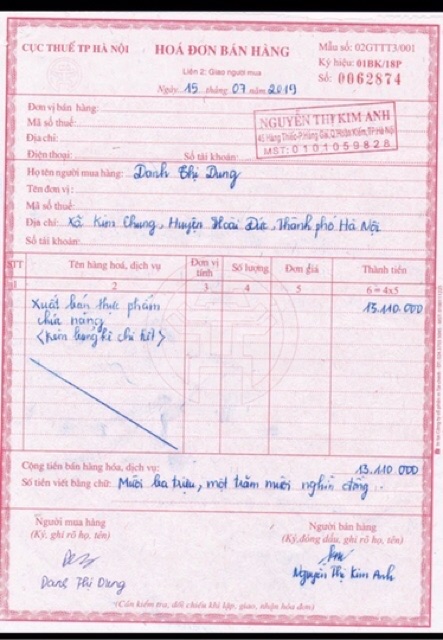 CỤC THUẾ TP HÀ NỘI
HOÁ ĐƠN BÁN HÀNG
Mẫu số: 02GTTT3/001
Ký hiệu: 01BK/18P
Số: 0062874
Liên 2: Giao người mua
Ngày 15 tháng 07 năm 2019
Đơn vị bán hàng:
Mã số thuế:
Địa chỉ:
Điện thoại: Số tài khoản:
NGUYỄN THỊ KIM ANH
45 Hàng Thiếc-P.Hàng Gai,Q.Hoàn Kiếm,TP.Hà Nội
MST: 0101059828
Họ tên người mua hàng: Danh Thị Dung
Tên đơn vị:
Mã số thuế:
Địa chỉ: Xã Kim Chung, Huyện Hoài Đức, Thành phố Hà Nội
Số tài khoản:
STT Tên hàng hoá, dịch vụ Đơn vị tính Số lượng Đơn giá Thành tiền
1 2 3 4 5 6 = 4x5
Xuất bán thực phẩm 13.110.000
chức năng
<Kèm bảng kê chi tiết>
Cộng tiền bán hàng hóa, dịch vụ: 13.110.000
Số tiền viết bằng chữ: Mười ba triệu, một trăm mười nghìn đồng.
Người mua hàng Người bán hàng
(Ký, ghi rõ họ, tên) (Ký,đóng dấu, ghi rõ họ, tên)
Danh Thị Dung Nguyễn Thị Kim Anh
(Cần kiểm tra, đối chiếu khi lập, giao, nhận hóa đơn)